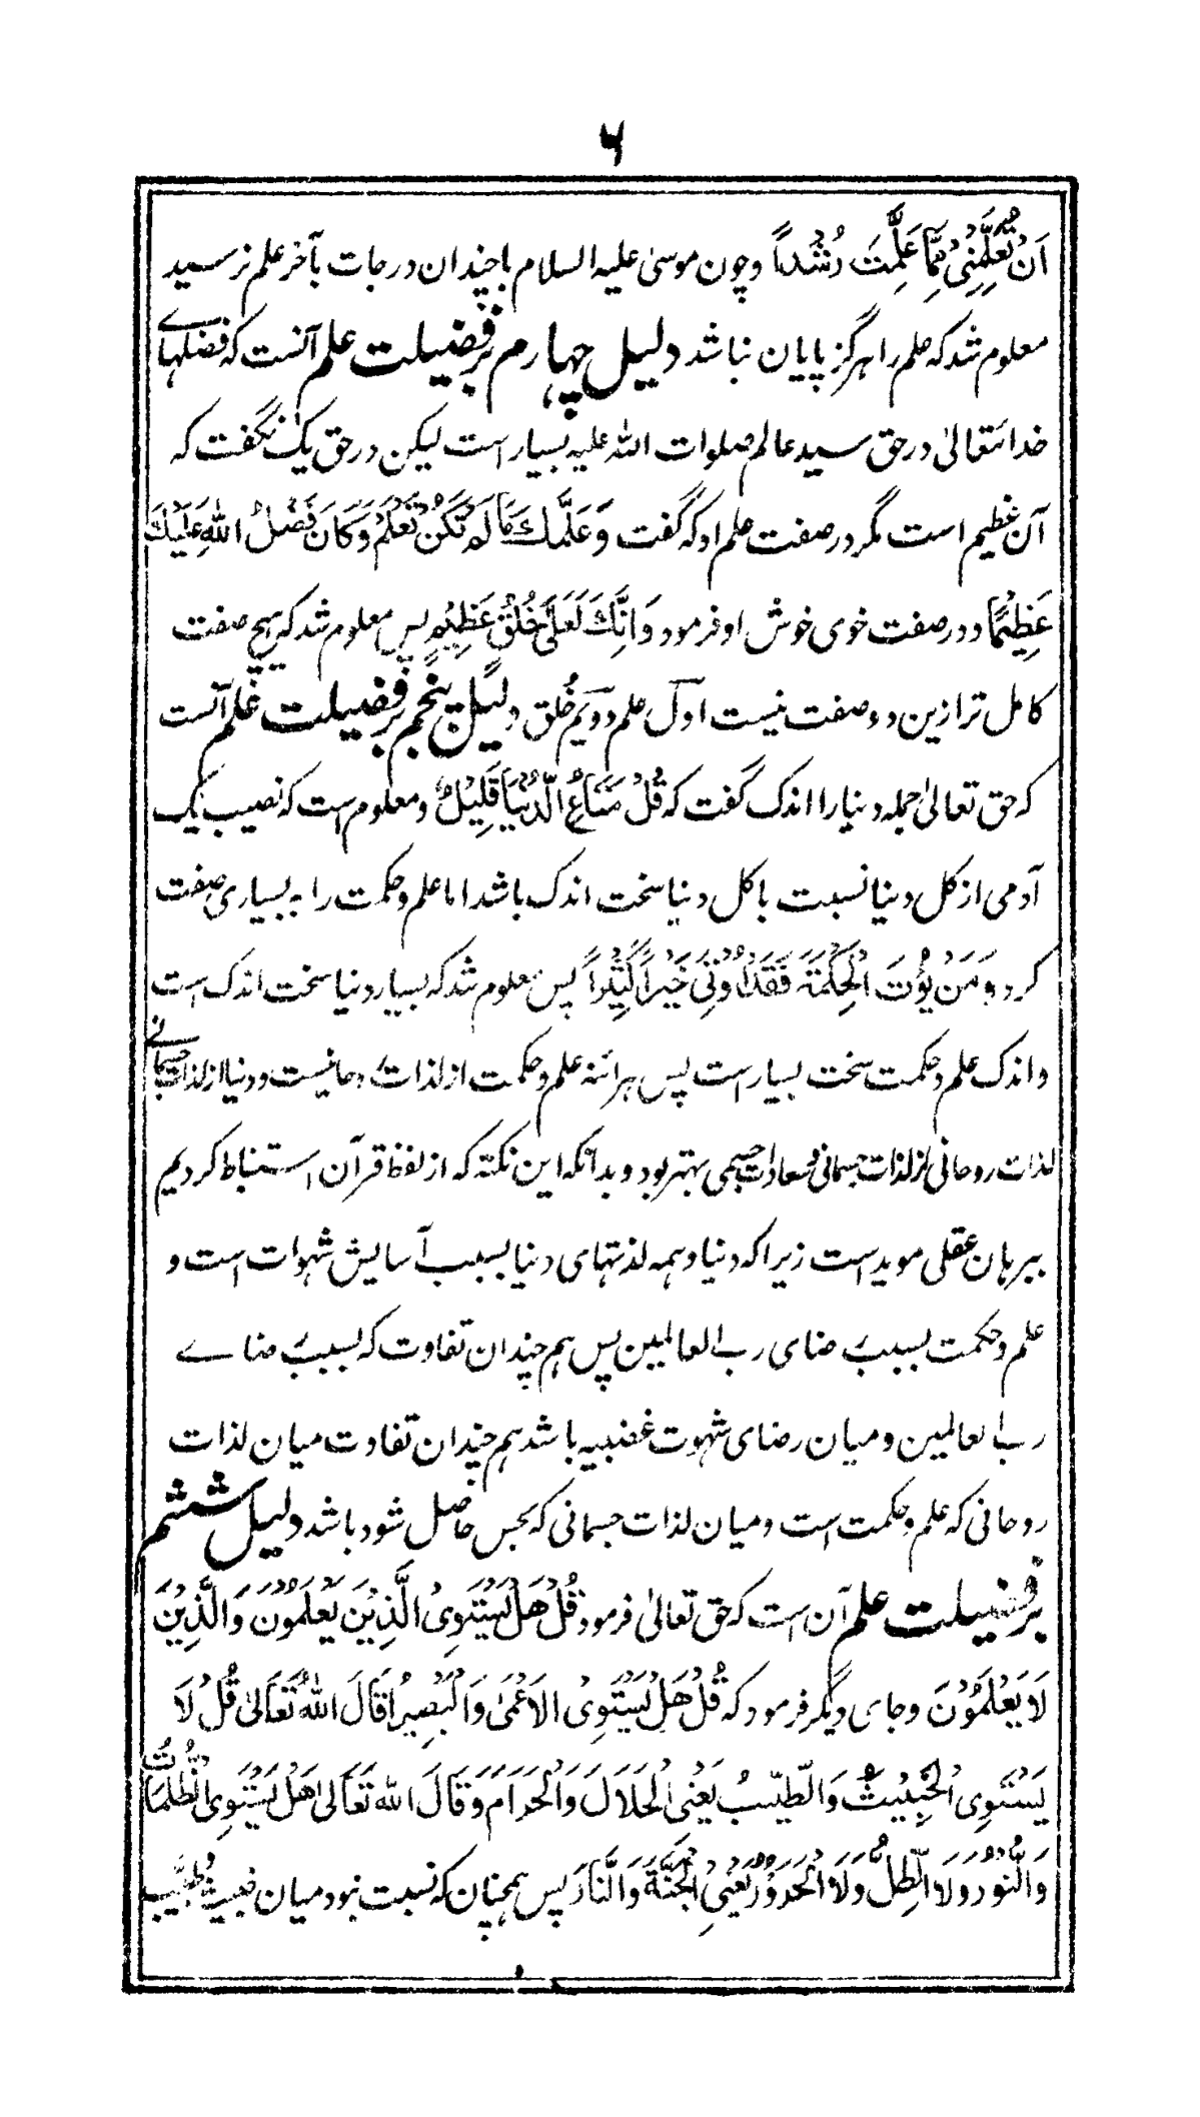 ۶
اَنْ تُعَلِّمَنِیْ مِمَّا عُلِّمْتَ رُشْداً وچون موسیٰ علیه السلام باچندان درجات بآخر علم نرسید
معلوم شد که علم را هرگز پایان نباشد دلیل چهارم بر فضیلت علم آنست که فضلهاے
خدایتعالیٰ در حق سید عالم صلوات الله علیه بسیار است لیکن در حق یک نگفت که
آن عظیم است مگر در صفت علم او که گفت وَعَلَّمَكَ مَا لَمْ تَكُنْ تَعْلَمُ وَكَانَ فَضْلُ اللهِ عَلَيْكَ
عَظِيْمًا و در صفت خوی خوش او فرمود وَاِنَّكَ لَعَلٰى خُلُقٍ عَظِيْمٍ پس معلوم شد که هیچ صفت
کامل تر ازین دو صفت نیست اول علم دویم خُلق دلیل پنجم بر فضیلت علم آنست
که حق تعالیٰ جمله دنیا را اندک گفت که قُلْ مَتَاعُ الدُّنْيَا قَلِيْلٌ و معلوم است که نصیب یک
آدمی از کل دنیا نسبت با کل دنیا سخت اندک باشد اما علم و حکمت را به بسیاری صفت
کرد وَمَنْ يُّؤْتَ الْحِكْمَةَ فَقَدْ اُوْتِيَ خَيْراً كَثِيْراً پس معلوم شد که بسیار دنیا سخت اندک است
و اندک علم و حکمت سخت بسیار است پس هرائنه علم و حکمت از لذات روحانیست و دنیا از لذات جسمانے
لذات روحانی از لذات جسمانی و سعادات جسمی بهتر بود و بدانکه این نکته که از لفظ قرآن استنباط کردیم
ببرهان عقلی مویدست زیرا که دنیا و همه لذتهای دنیا بسبب آسایش شهوات است و
علم و حکمت بسبب رضای رب العالمین پس هم چندان تفاوت که بسبب رضاے
رب العالمین و میان رضای شهوت غضبیه باشد هم چندان تفاوت میان لذات
روحانی که علم و حکمت است و میان لذات جسمانی که بحس حاصل شود باشد دلیل ششم
بر فضیلت علم آن است که حق تعالیٰ فرمود قُلْ هَلْ يَسْتَوِى الَّذِيْنَ يَعْلَمُوْنَ وَالَّذِيْنَ
لَا يَعْلَمُوْنَ و جای دیگر فرمود که قُلْ هَلْ يَسْتَوِى الْاَعْمٰى وَالْبَصِيْرُ قَالَ اللهُ تَعَالٰى قُلْ لَا
يَسْتَوِى الْخَبِيْثُ وَالطَّيِّبُ يَعْنِى الْحَلَالَ وَالْحَرَامَ وَقَالَ اللهُ تَعَالٰى هَلْ يَسْتَوِى الظُّلُمَاتُ
وَالنُّوْرُ وَلَا الظِّلُّ وَلَا الْحَرُوْرُ يَعْنِى الْجَنَّةَ وَالنَّارَ پس همچنان که نسبت نبود میان خبیث و طیب